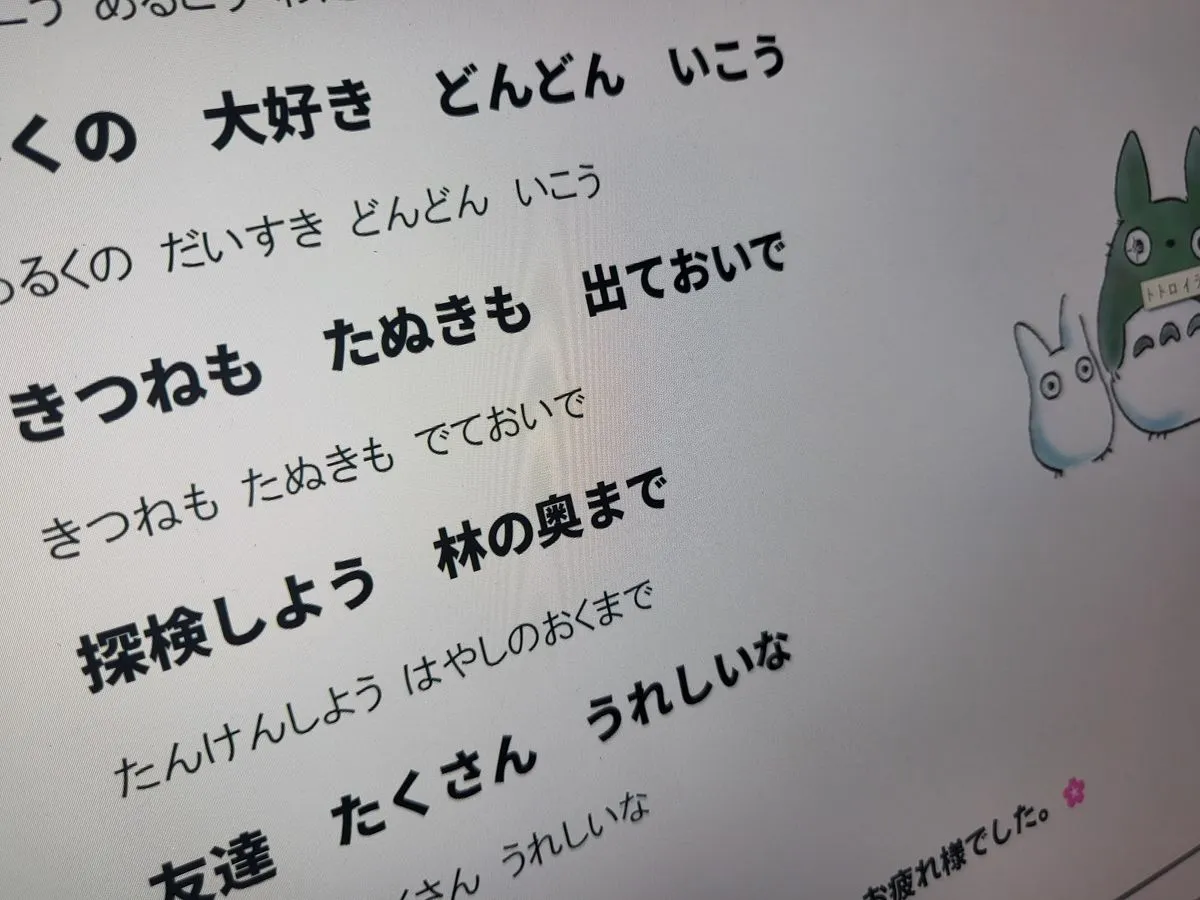 くの 大好き どんどん いこう
るくの だいすき どんどん いこう
きつねも たぬきも 出ておいで
きつねも たぬきも でておいで
探検しよう 林の奥まで
たんけんしよう はやしのおくまで
友達 たくさん うれしいな
くさん うれしいな
トトロイラ
お疲れ様でした。